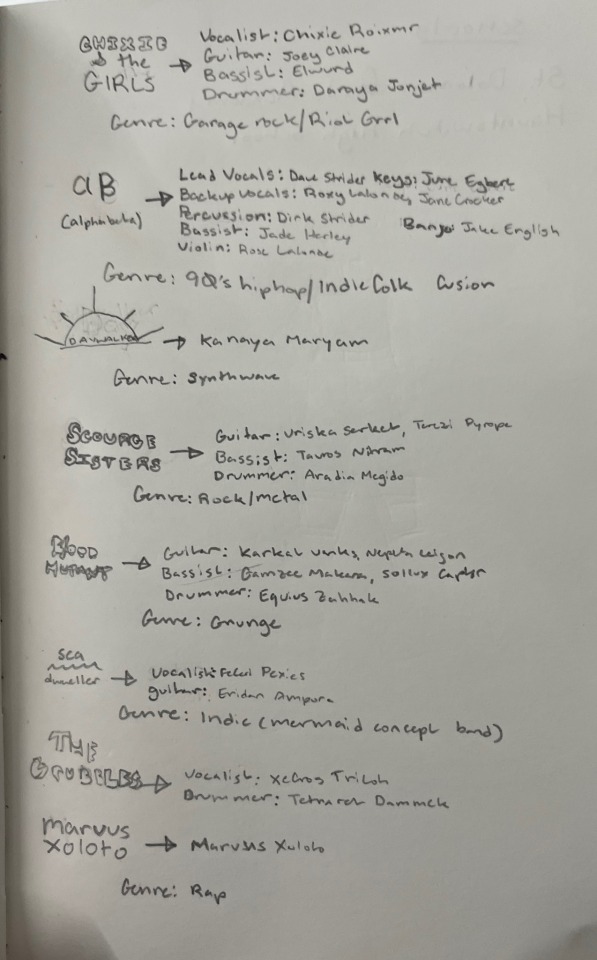 CHIXIE
& the
GIRLS
Vocalist: Chixie Roixmr
Guitar: Joey Claire
Bassist: Elwurd
Drummer: Daraya Jonjet
Genre: Garage rock/Riot Grrl
aβ
(alphabeta)
Lead Vocals: Dave Strider Keys: June Egbert
Backup Vocals: Roxy Lalonde, Jane Crocker
Percussion: Dirk Strider Banjo: Jake English
Bassist: Jade Harley
Violin: Rose Lalonde
Genre: 90's hiphop/Indie folk fusion
DAYWALKER
Kanaya Maryam
Genre: Synthwave
SCOURGE
SISTERS
Guitar: Vriska Serket, Terezi Pyrope
Bassist: Tavros Nitram
Drummer: Aradia Megido
Genre: Rock/metal
BLOOD
MUTANT
Guitar: Karkat Vantas, Nepeta Leijon
Bassist: Gamzee Makara, Sollux Captor
Drummer: Equius Zahhak
Genre: Grunge
sea
dweller
Vocalist: Feferi Peixes
guitar: Eridan Ampora
Genre: Indie (mermaid concept band)
THE
GRUBBLES
Vocalist: Xefros Tritoh
Drummer: Tetrarch Dammek
Marvus
Xoloto
Marvus Xoloto
Genre: Rap